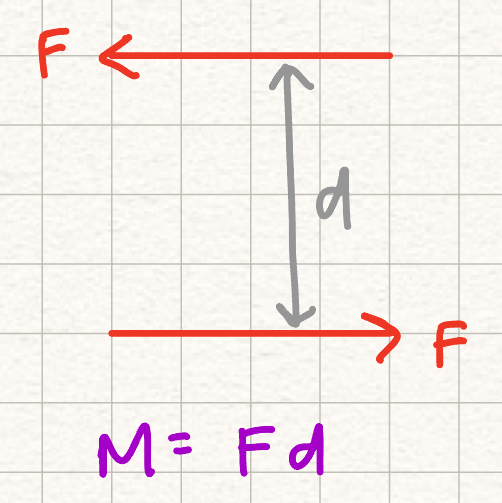 F
d
F
M = Fd